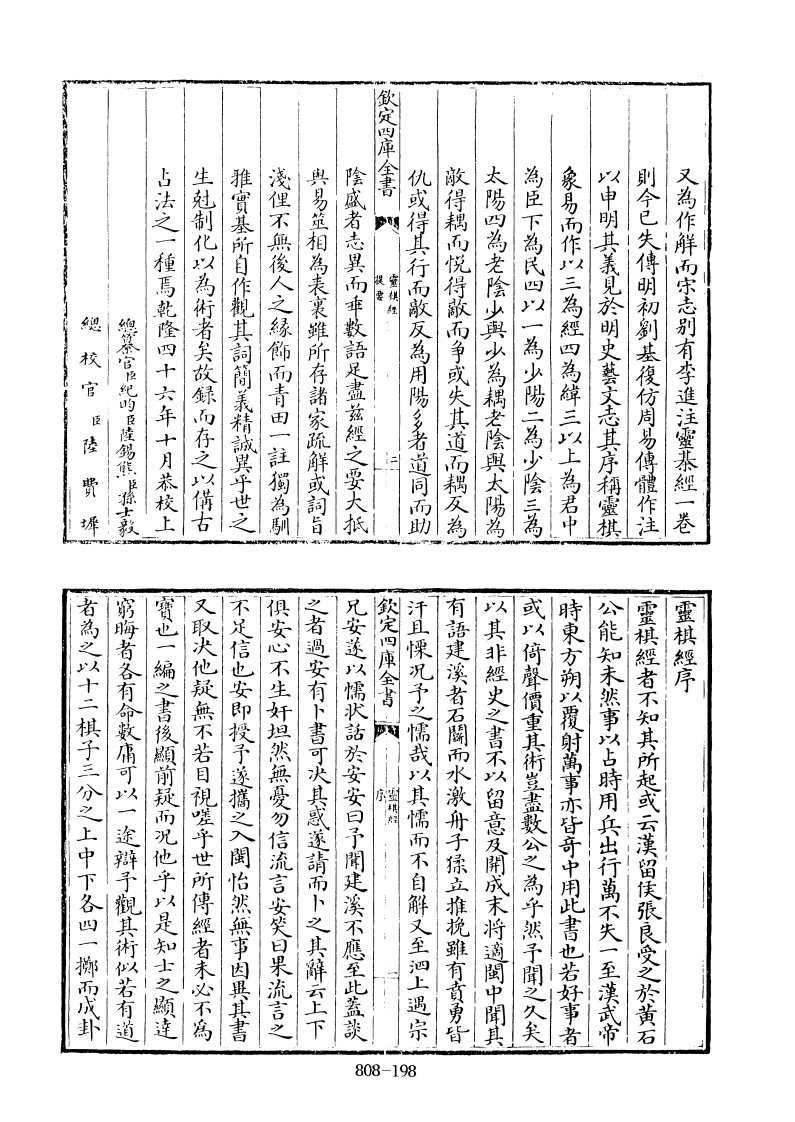 又為作解而宋志别有李進注靈棊經一卷
則今已失傳明初劉基復仿周易傳體作注
以申明其義見於明史藝文志其序稱靈棋
象易而作以三為經四為緯三以上為君中
為臣下為民四以一為少陽二為少陰三為
太陽四為老陰少與少為耦老陰與太陽為
敵得耦而悅得敵而爭或失其道而耦反為
仇或得其行而敵反為用陽多者道同而助
欽定四庫全書
靈棋經
提要
二
陰盛者志異而乖數語足盡兹經之要大抵
與易筮相為表裏雖所存諸家疏解或詞旨
淺俚不無後人之緣飾而青田一註獨為馴
雅實基所自作觀其詞簡義精誠異乎世之
生尅制化以為術者矣故録而存之以備古
占法之一種焉乾隆四十六年十月恭校上
總纂官臣紀昀臣陸錫熊臣孫士毅
總校官臣陸費墀
靈棋經序
靈棋經者不知其所起或云漢留侯張良受之於黃石
公能知未然事以占時用兵出行萬不失一至漢武帝
時東方朔以覆射萬事亦皆竒中用此書也若好事者
或以倚聲價重其術豈盡數公之為乎然予聞之久矣
以其非經史之書不以留意及開成末將適閩中聞其
有語建溪者石鬬而水激舟子猱立推挽雖有賁勇皆
汗且慄况予之懦哉以其懦而不自解又至泗上遇宗
欽定四庫全書
靈棋經
序
一
兄安遂以懦狀話於安安曰予聞建溪不應至此蓋談
之者過安有卜書可决其惑遂請而卜之其辭云上下
俱安心不生奸坦然無憂勿信流言安笑曰果流言之
不足信也安即授予遂攜之入閩怡然無事因異其書
又取决他疑無不若目視嗟乎世所傳經者未必不為
寶也一編之書後顯前疑而况他乎以是知士之顯達
窮晦者各有命數庸可以一途辯予觀其術似若有道
者為之以十二棋子三分之上中下各四一擲而成卦
808-198